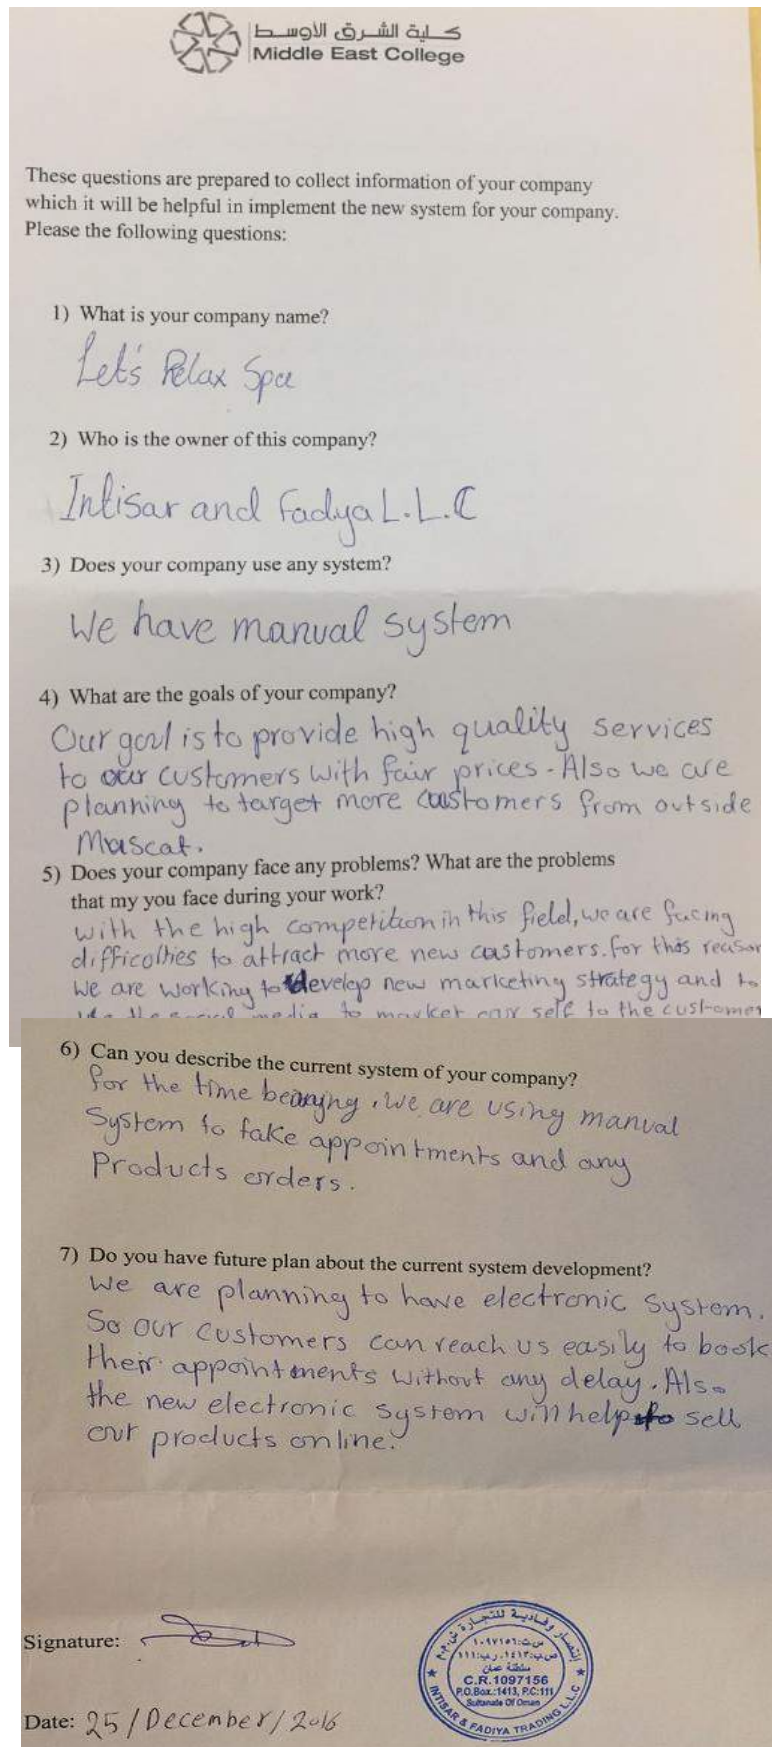 كلية الشرق الأوسط
Middle East College
These questions are prepared to collect information of your company
which it will be helpful in implement the new system for your company.
Please the following questions:
1) What is your company name?
Let's Relax Spa
2) Who is the owner of this company?
Intisar and Fadya L.L.C
3) Does your company use any system?
We have manual system
4) What are the goals of your company?
Our goal is to provide high quality services
to our customers with fair prices - Also we are
planning to target more customers from outside
Muscat.
5) Does your company face any problems? What are the problems
that my you face during your work?
with the high competition in this field, we are facing
difficolties to attract more new castomers. for this reason
we are working to develop new marketing strategy and to
the social media to market our self to the customer
6) Can you describe the current system of your company?
for the time bearing, we are using manual
System to take appointments and any
Products orders.
7) Do you have future plan about the current system development?
We are planning to have electronic system.
So our customers can reach us easily to book
their appointments without any delay. Also
the new electronic system will help to sell
our products online.
Signature:
انتصار وفادية للتجارة ش.م.م
س.ت: ١٠٩٧١٥٦
ص.ب: ١٤١٣، ر.ب: ١١١
سلطنة عمان
C.R.1097156
P.O.Box.:1413, P.C:111
Sultanate Of Oman
INTISAR & FADIYA TRADING L.L.C
Date: 25/December/2016